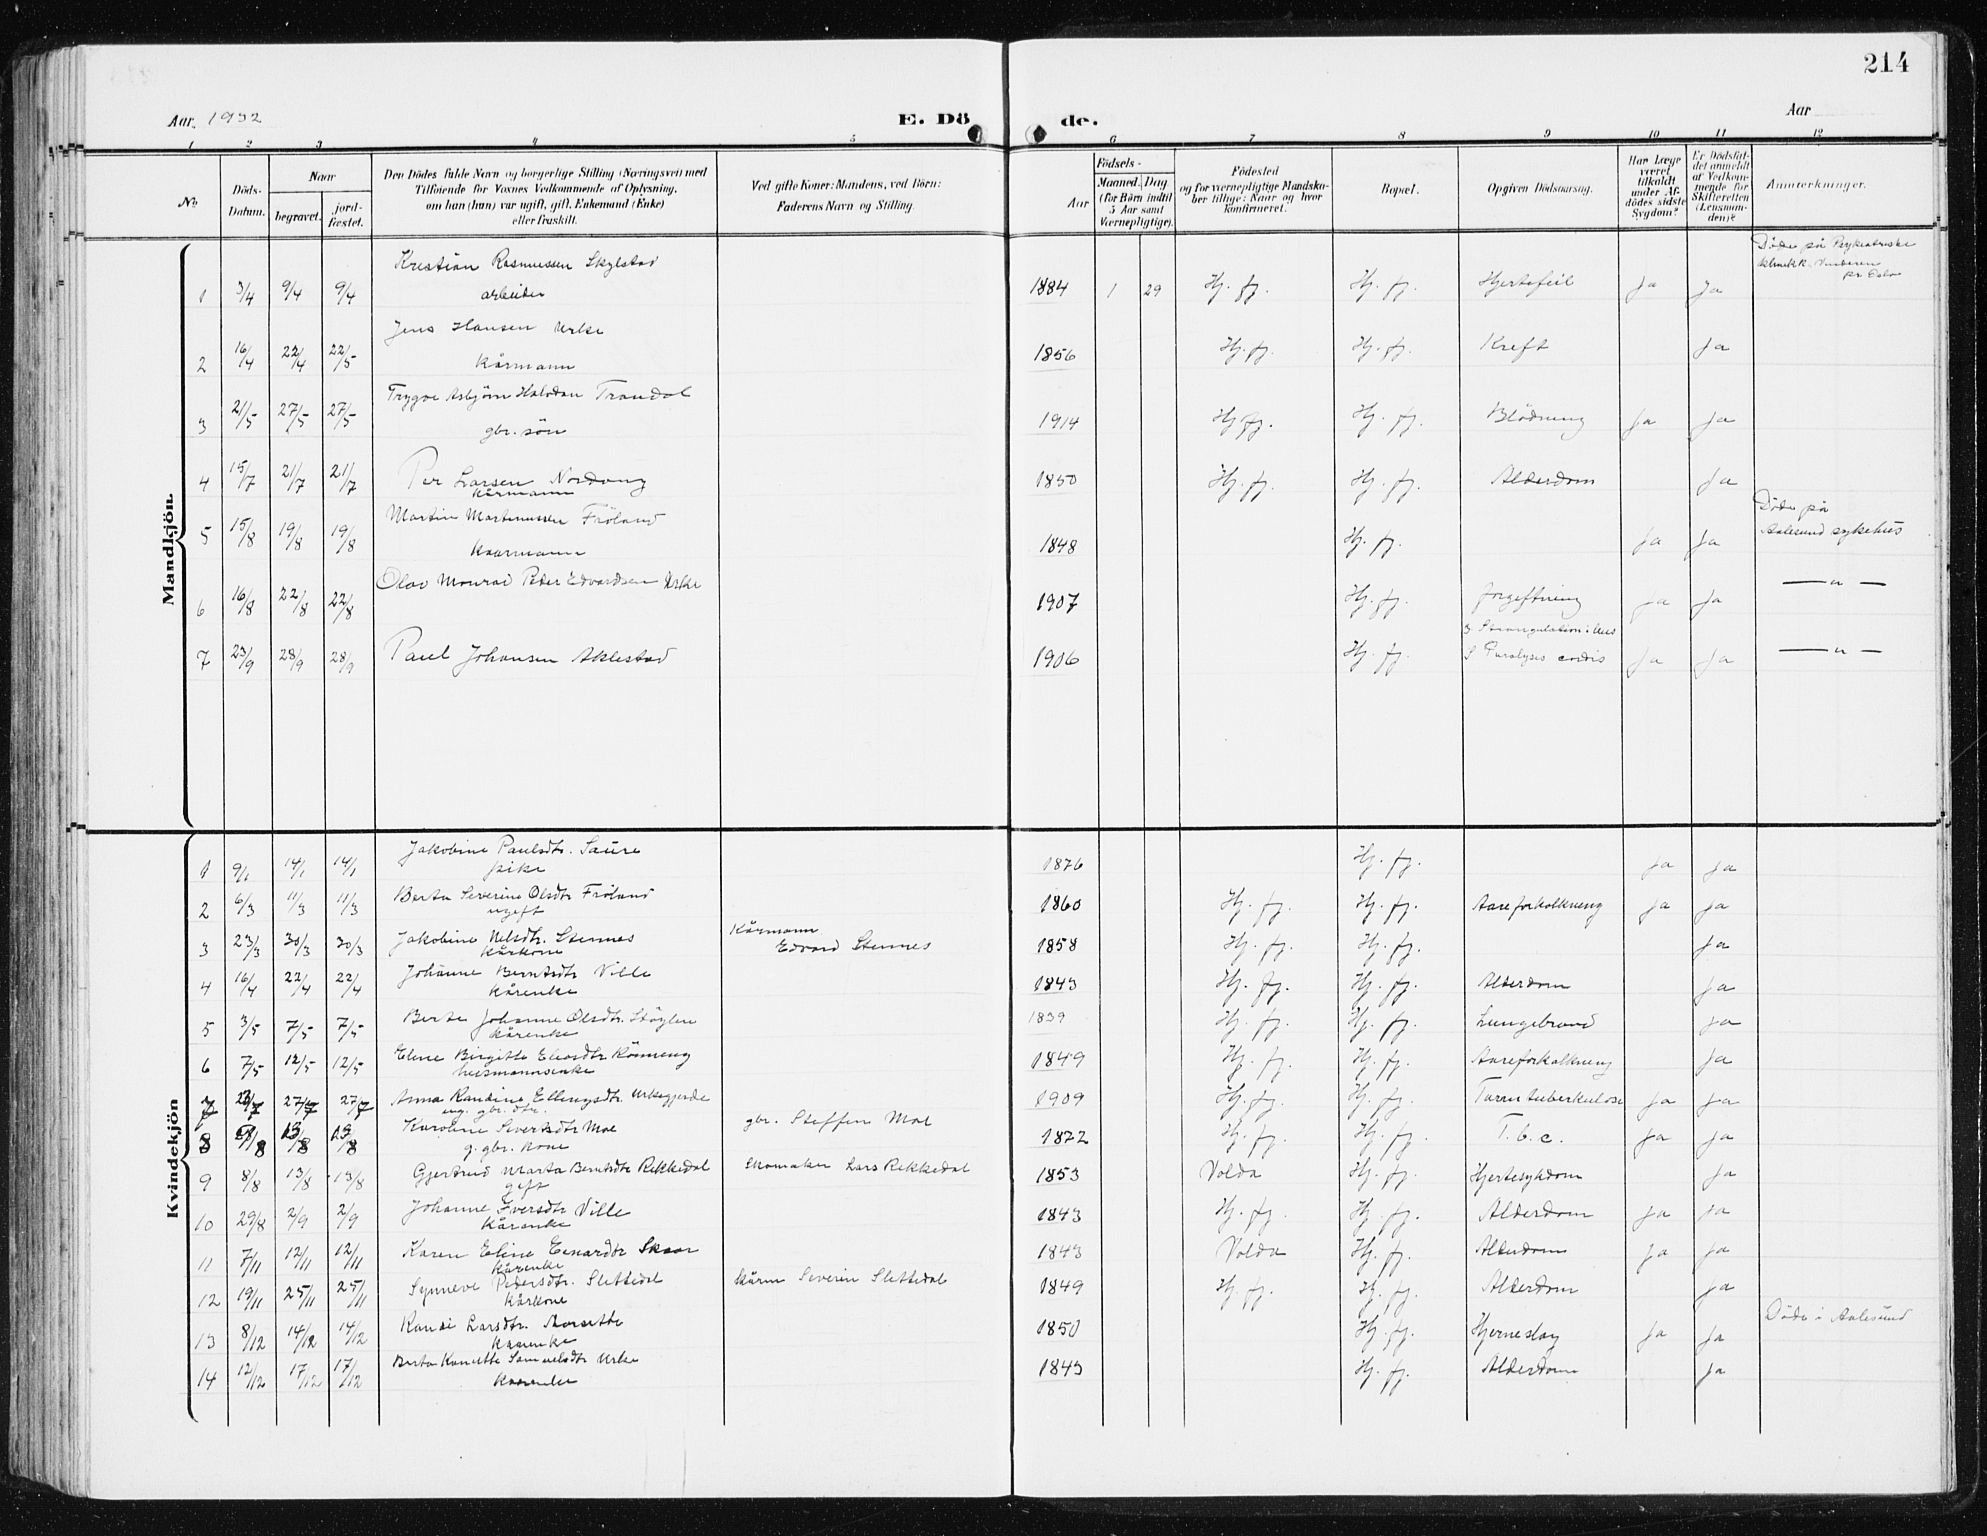 214
Aar. 1932
E. Dö
de.
Aar
1 2 3 4 5 6 7 8 9 10 11 12
No
Döds-Datum.
Naar
begravet.
jord-fæstet.
Den Dödes fulde Navn og borgerlige Stilling (Næringsvei) med
Tilföiende for Voxnes Vedkommende af Oplysning,
om han (hun) var ugift, gift, Enkemand (Enke)
eller fraskilt.
Ved gifte Koner: Mandens, ved Börn:
Faderens Navn og Stilling.
Aar
Födsels-
Maaned. Dag
(for Börn indtil
5 Aar samt
Værnepligtige).
Födested
og for værnepligtige Mandska-
ber tillige: Naar og hvor
konfirmeret.
Bopæl.
Opgiven Dödsaarsag.
Har Læge
været
tilkaldt
under Af-
dödes sidste
Sygdom?
Er Dödsfal-
det anmeldt
af Vedkom-
mende for
Skifteretten
(Lensman-
den)?
Anmærkninger.
Mandkjön.
Kristian Rasmussen Skylstad Døde på Psykiatriske
klinikk, Vinderen
pr Oslo
1 3/4 9/4 9/4 arbeider 1884 1 29 Hj. fj. Hj. fj. Hjertefeil Ja Ja
Jens Hansen Urke
2 16/4 22/4 22/5 kårmann 1856 Hj. fj. Hj. fj. Kreft Ja
Trygve Asbjörn Halvdan Trandal
3 21/5 27/5 27/5 gbr. sön 1914 Hj. fj. Hj. fj. Blödning Ja Ja
4 15/7 21/7 21/7 Per Larsen Nordang 1850 Hj. fj. Hj. fj. Alderdom Ja
kårmann
Martin Martinussen Fröland Døde på
5 15/8 19/8 19/8 kaarmann 1848 Hj. fj. Ja Ja Aalesund sykehus
Olav Monrad Peder Edvardsen Urke
6 16/8 22/8 22/8 1907 Hj. fj. forgiftning Ja Ja — " —
Strangulation
7 23/9 28/9 28/9 Paul Johansen Aklestad 1906 Hj. fj. Paralysis cordis Ja Ja — " —
Kvindekjön
Jakobine Paulsdtr. Saure
1 9/1 14/1 14/1 pike 1876 Hj. fj. Ja Ja
Berta Severine Olsdtr Fröland
2 6/3 11/3 11/3 ugift 1860 Hj. fj. Hj. fj. Aareforkalkning Ja Ja
Jakobine Nilsdtr. Stennes Kårmann
3 23/3 30/3 30/3 kårkone Edvard Stennes 1858 Hj. fj. Hj. fj. Ja
Johanne Berntsdtr Ville
4 16/4 22/4 22/4 kårenke 1843 Hj. fj. Hj. fj. Alderdom Ja
Berte Johanne Olsdtr.
5 3/5 7/5 7/5 kårenke 1839 Hj. fj. Hj. fj. Lungebrand Ja
Eline Birgitte
6 7/5 12/5 12/5 husmannsenke 1849 Hj. fj. Hj. fj. Aareforkalkning Ja
Anna Randine Ellingsdtr. Urkegjerde
7 27/7 27/7 ug. gbr. dtr. 1909 Hj. fj. Hj. fj. Tarmtuberkulose Ja Ja
Karoline Sivertsdtr Moe gbr. Steffen Moe
8 13/8 13/8 g. gbr. kone 1872 Hj. fj. Hj. fj. T. b. c. Ja Ja
Gjertrud Marta Berntsdtr Rekkedal Skomaker Lars Rekkedal
9 8/8 13/8 13/8 gift 1853 Volda Hj. fj. Hjertesykdom Ja
Johanne Iversdtr Ville
10 29/8 2/9 2/9 kårenke 1843 Hj. fj. Hj. fj. Alderdom Ja Ja
Karen Eline Skaar
11 7/11 12/11 12/11 kårenke 1843 Volda Hj. fj. Alderdom Ja Ja
Synneve Pedersdtr. Slettedal kårm Severin Slettedal
12 19/11 25/11 25/11 kårkone 1849 Hj. fj. Hj. fj. Alderdom Ja
Randi Larsdtr. Døde i Aalesund
13 8/12 14/12 14/12 kaarenke 1850 Hj. fj. Hjerneslag Ja Ja
Berta Samuelsdtr Urke
14 12/12 17/12 17/12 kaarenke 1843 Hj. fj. Alderdom Ja